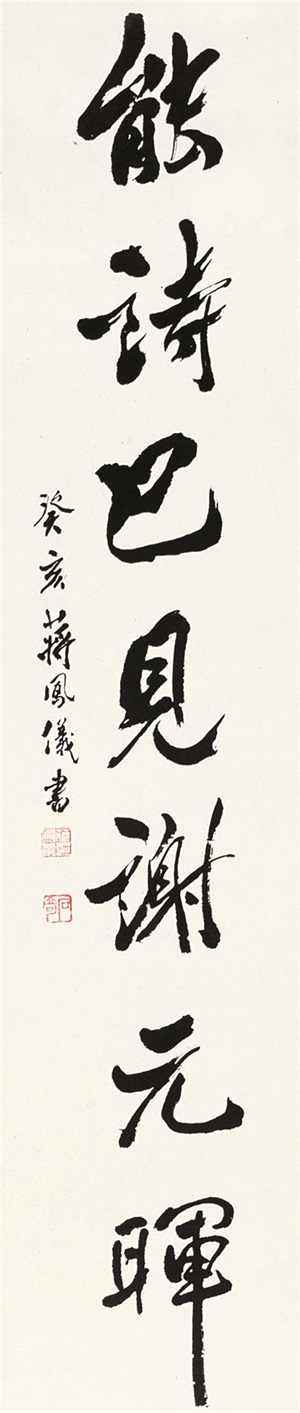 能詩已見謝元暉
癸亥蔣鳳儀書